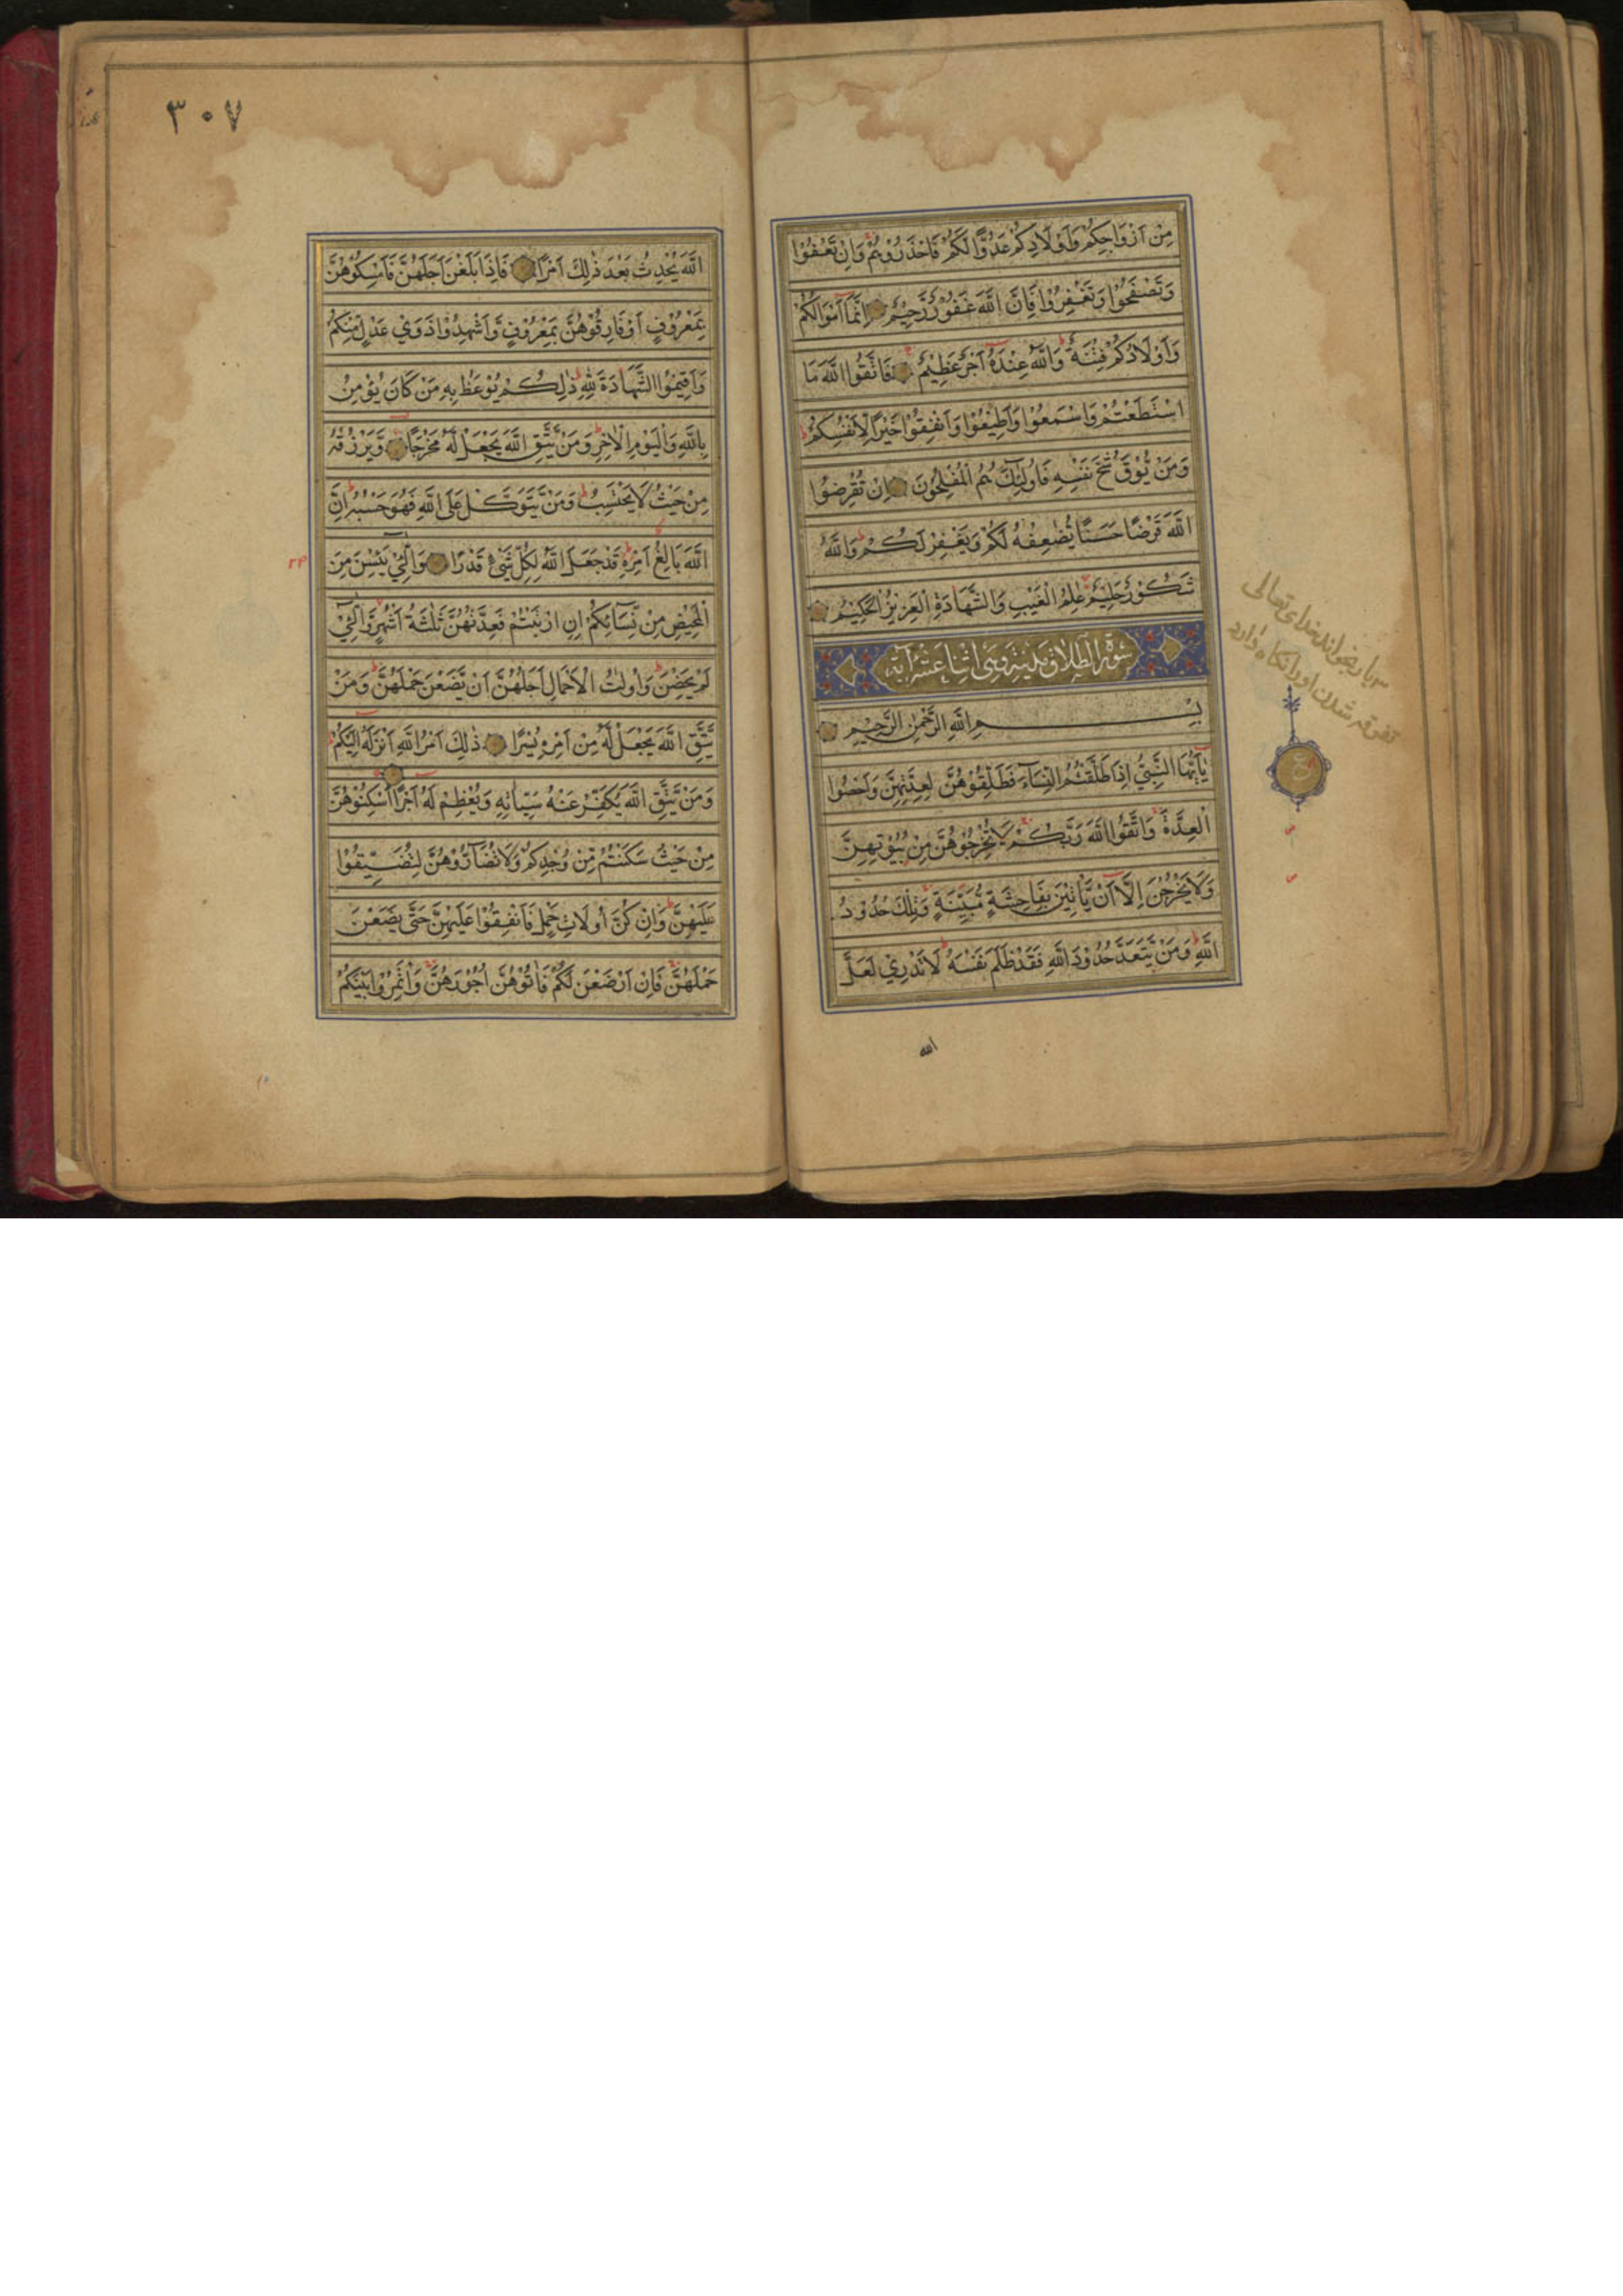 مِنْ اَزْوَاجِكُمْ وَاَوْلَادِكُمْ عَدُوًّا لَكُمْ فَاحْذَرُوْهُمْ وَاِنْ تَعْفُوْا
وَتَصْفَحُوْا وَتَغْفِرُوْا فَاِنَّ اللّٰهَ غَفُوْرٌ رَّحِيْمٌ اِنَّمَا اَمْوَالُكُمْ
وَاَوْلَادُكُمْ فِتْنَةٌ وَاللّٰهُ عِنْدَهُ اَجْرٌ عَظِيْمٌ فَاتَّقُوا اللّٰهَ مَا
اسْتَطَعْتُمْ وَاسْمَعُوْا وَاَطِيْعُوْا وَاَنْفِقُوْا خَيْرًا لِاَنْفُسِكُمْ
وَمَنْ يُوْقَ شُحَّ نَفْسِهِ فَاُولٰئِكَ هُمُ الْمُفْلِحُوْنَ اِنْ تُقْرِضُوا
اللّٰهَ قَرْضًا حَسَنًا يُضٰعِفْهُ لَكُمْ وَيَغْفِرْ لَكُمْ وَاللّٰهُ
شَكُوْرٌ حَلِيْمٌ عٰلِمُ الْغَيْبِ وَالشَّهَادَةِ الْعَزِيْزُ الْحَكِيْمُ
سورة الطلاق مدنية وهى اثنا عشر آية
بِسْمِ اللّٰهِ الرَّحْمٰنِ الرَّحِيْمِ
يٰاَيُّهَا النَّبِيُّ اِذَا طَلَّقْتُمُ النِّسَآءَ فَطَلِّقُوْهُنَّ لِعِدَّتِهِنَّ وَاَحْصُوا
الْعِدَّةَ وَاتَّقُوا اللّٰهَ رَبَّكُمْ لَا تُخْرِجُوْهُنَّ مِنْ بُيُوْتِهِنَّ
وَلَا يَخْرُجْنَ اِلَّا اَنْ يَّاْتِيْنَ بِفَاحِشَةٍ مُّبَيِّنَةٍ وَتِلْكَ حُدُوْدُ
اللّٰهِ وَمَنْ يَّتَعَدَّ حُدُوْدَ اللّٰهِ فَقَدْ ظَلَمَ نَفْسَهُ لَا تَدْرِيْ لَعَلَّ
الله
٣ بار بخواند خدای تعالی
او را نگاه دارد
ع
٣٠٧
اللّٰهَ يُحْدِثُ بَعْدَ ذٰلِكَ اَمْرًا فَاِذَا بَلَغْنَ اَجَلَهُنَّ فَاَمْسِكُوْهُنَّ
بِمَعْرُوْفٍ اَوْ فَارِقُوْهُنَّ بِمَعْرُوْفٍ وَّاَشْهِدُوْا ذَوَيْ عَدْلٍ مِّنْكُمْ
وَاَقِيْمُوا الشَّهَادَةَ لِلّٰهِ ذٰلِكُمْ يُوْعَظُ بِهِ مَنْ كَانَ يُؤْمِنُ
بِاللّٰهِ وَالْيَوْمِ الْاٰخِرِ وَمَنْ يَّتَّقِ اللّٰهَ يَجْعَلْ لَهُ مَخْرَجًا وَّيَرْزُقْهُ
مِنْ حَيْثُ لَا يَحْتَسِبُ وَمَنْ يَّتَوَكَّلْ عَلَى اللّٰهِ فَهُوَ حَسْبُهُ اِنَّ
اللّٰهَ بَالِغُ اَمْرِهِ قَدْ جَعَلَ اللّٰهُ لِكُلِّ شَيْءٍ قَدْرًا وَالّٰئِيْ يَئِسْنَ مِنَ
الْمَحِيْضِ مِنْ نِّسَآئِكُمْ اِنِ ارْتَبْتُمْ فَعِدَّتُهُنَّ ثَلٰثَةُ اَشْهُرٍ وَّالّٰئِيْ
لَمْ يَحِضْنَ وَاُولَاتُ الْاَحْمَالِ اَجَلُهُنَّ اَنْ يَّضَعْنَ حَمْلَهُنَّ وَمَنْ
يَّتَّقِ اللّٰهَ يَجْعَلْ لَّهُ مِنْ اَمْرِهِ يُسْرًا ذٰلِكَ اَمْرُ اللّٰهِ اَنْزَلَهُ اِلَيْكُمْ
وَمَنْ يَّتَّقِ اللّٰهَ يُكَفِّرْ عَنْهُ سَيِّاٰتِهِ وَيُعْظِمْ لَهُ اَجْرًا اَسْكِنُوْهُنَّ
مِنْ حَيْثُ سَكَنْتُمْ مِّنْ وُجْدِكُمْ وَلَا تُضَآرُّوْهُنَّ لِتُضَيِّقُوْا
عَلَيْهِنَّ وَاِنْ كُنَّ اُولَاتِ حَمْلٍ فَاَنْفِقُوْا عَلَيْهِنَّ حَتّٰى يَضَعْنَ
حَمْلَهُنَّ فَاِنْ اَرْضَعْنَ لَكُمْ فَاٰتُوْهُنَّ اُجُوْرَهُنَّ وَاْتَمِرُوْا بَيْنَكُمْ